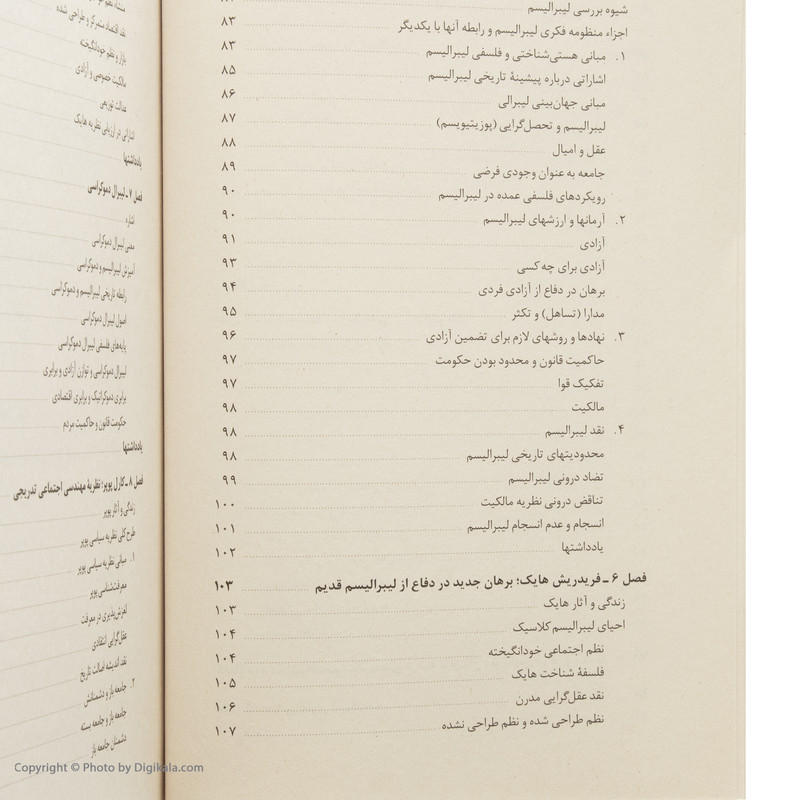 شیوه بررسی لیبرالیسم
اجزاء منظومه فکری لیبرالیسم و رابطه آنها با یکدیگر ۸۳
۱. مبانی هستی‌شناختی و فلسفی لیبرالیسم ۸۳
اشاراتی درباره پیشینهٔ تاریخی لیبرالیسم ۸۵
مبانی جهان‌بینی لیبرالی ۸۶
لیبرالیسم و تحصل‌گرایی (پوزیتیویسم) ۸۷
عقل و امیال ۸۸
جامعه به عنوان وجودی فرضی ۸۹
رویکردهای فلسفی عمده در لیبرالیسم ۹۰
۲. آرمانها و ارزشهای لیبرالیسم ۹۰
آزادی ۹۱
آزادی برای چه کسی ۹۳
برهان در دفاع از آزادی فردی ۹۴
مدارا (تساهل) و تکثر ۹۵
۳. نهادها و روشهای لازم برای تضمین آزادی ۹۶
حاکمیت قانون و محدود بودن حکومت ۹۷
تفکیک قوا ۹۷
مالکیت ۹۸
۴. نقد لیبرالیسم ۹۸
محدودیتهای تاریخی لیبرالیسم ۹۸
تضاد درونی لیبرالیسم ۹۹
تناقض درونی نظریه مالکیت ۱۰۰
انسجام و عدم انسجام لیبرالیسم ۱۰۱
یادداشتها ۱۰۲
فصل ۶ ـ فریدریش هایک؛ برهان جدید در دفاع از لیبرالیسم قدیم ۱۰۳
زندگی و آثار هایک ۱۰۳
احیای لیبرالیسم کلاسیک ۱۰۴
نظم اجتماعی خودانگیخته ۱۰۴
فلسفهٔ شناخت هایک ۱۰۵
نقد عقل‌گرایی مدرن ۱۰۶
نظم طراحی شده و نظم طراحی نشده ۱۰۷
نقد اقتصاد متمرکز و طراحی شده
بازار و نظم خودانگیخته
مالکیت خصوصی و آزادی
عدالت توزیعی
اشاراتی در ارزیابی نظریه هایک
یادداشتها
فصل ۷ ـ لیبرال دموکراسی
اشاره
معنی لیبرال دموکراسی
آمیزش لیبرالیسم و دموکراسی
رابطه تاریخی لیبرالیسم و دموکراسی
اصول لیبرال دموکراسی
پایه‌های فلسفی لیبرال دموکراسی
لیبرال دموکراسی و توازن آزادی و برابری
برابری دموکراتیک و برابری اقتصادی
حکومت قانون و حاکمیت مردم
یادداشتها
فصل ۸ ـ کارل پوپر: نظریهٔ مهندسی اجتماعی تدریجی
زندگی و آثار پوپر
طرح کلی نظریه سیاسی پوپر
۱. مبانی نظریه سیاسی پوپر
معرفت‌شناسی پوپر
لغزش‌پذیری در معرفت
عقل‌گرایی انتقادی
نقد اندیشه اصالت تاریخ
۲. جامعه باز و دشمنانش
جامعه باز و جامعه بسته
دشمنان جامعه باز
Copyright © Photo by Digikala.com